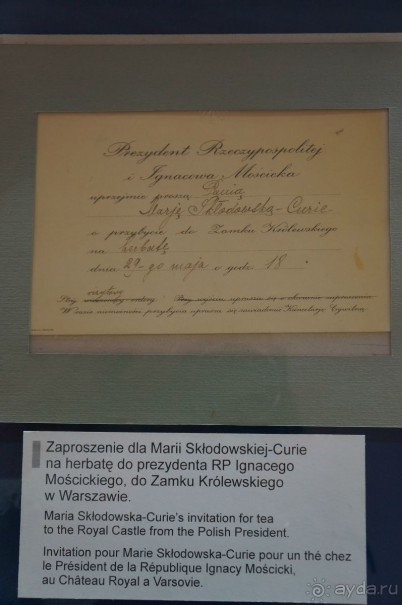 Prezydent Rzeczypospolitej
i Ignacowa Mościcka
uprzejmie proszą Panią
Marję Skłodowską-Curie
o przybycie do Zamku Królewskiego
na herbatę
dnia 29-go maja o godz. 18
Strój wizytowy
W razie niemożności przybycia uprasza się
Zaproszenie dla Marii Skłodowskiej-Curie
na herbatę do prezydenta RP Ignacego
Mościckiego, do Zamku Królewskiego
w Warszawie.
Maria Skłodowska-Curie's invitation for tea
to the Royal Castle from the Polish President.
Invitation pour Marie Skłodowska-Curie pour un thé chez
le Président de la République Ignacy Mościcki,
au Château Royal a Varsovie.
ayda.ru